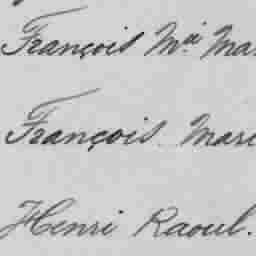 François Mie Mar
François Marc
Henri Raoul.